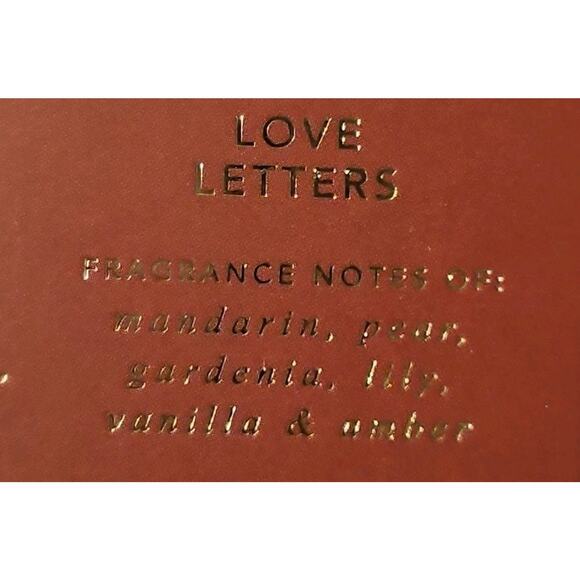 LOVE
LETTERS
FRAGRANCE NOTES OF:
mandarin, pear,
gardenia, lily,
vanilla & amber